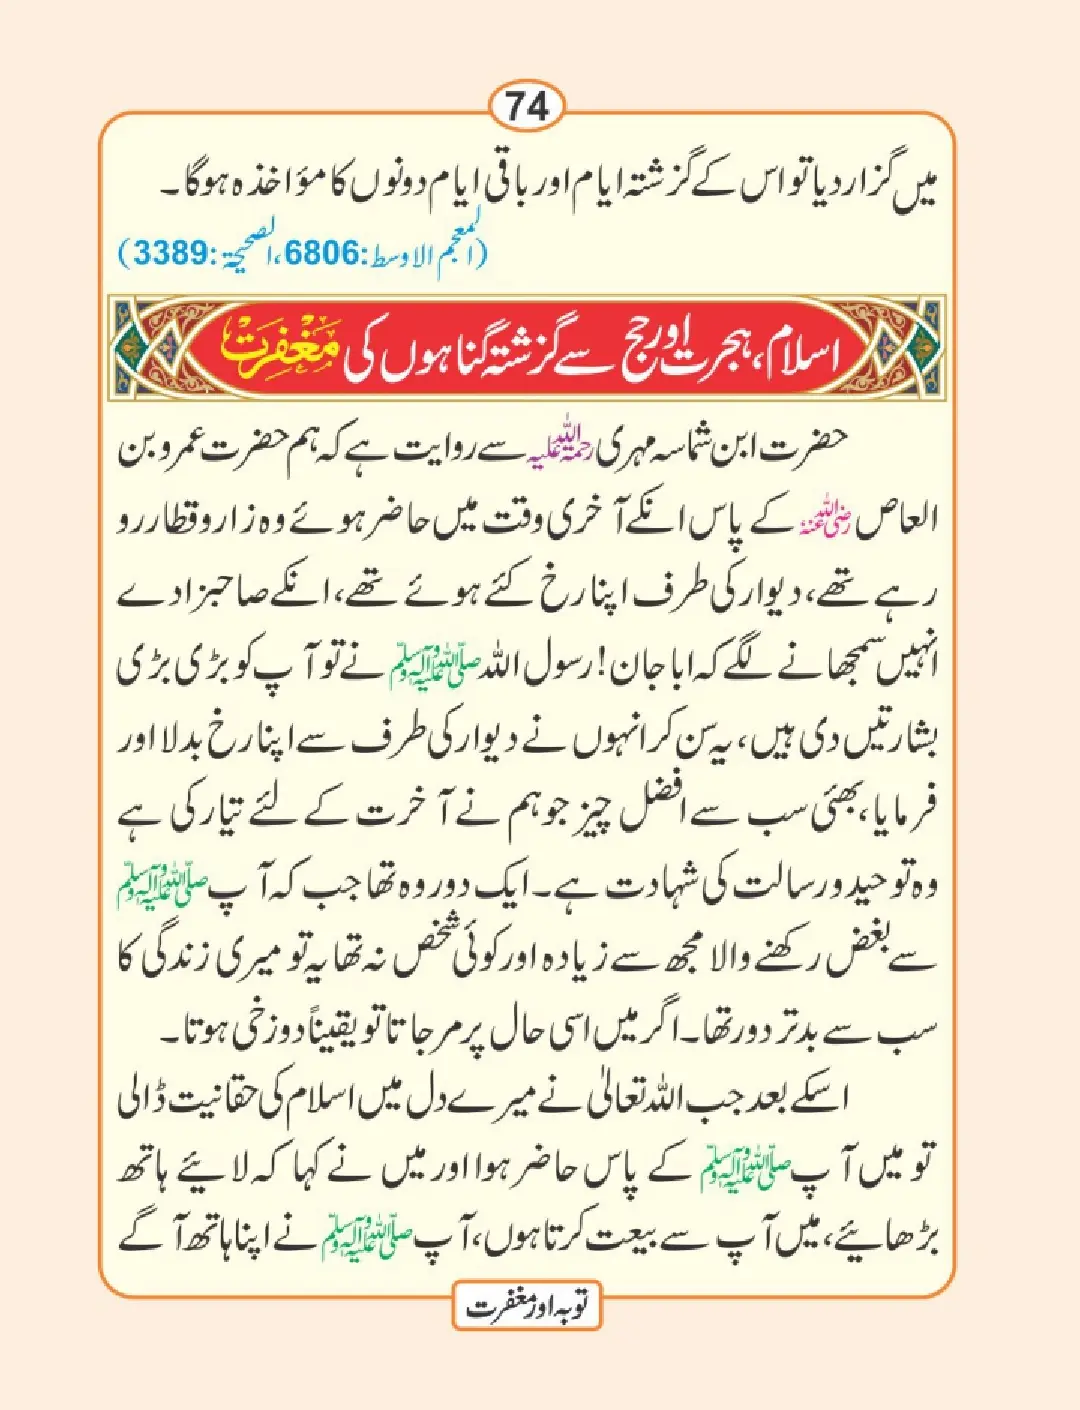 74
میں گزار دیا تو اس کے گزشتہ ایام اور باقی ایام دونوں کا مؤاخذہ ہوگا۔
(المعجم الاوسط:6806،الصحیحۃ:3389)
اسلام، ہجرت اور حج سے گزشتہ گناہوں کی مغفرت
حضرت ابن شماسہ مہری رحمۃ اللہ علیہ سے روایت ہے کہ ہم حضرت عمرو بن
العاص رضی اللہ عنہ کے پاس انکے آخری وقت میں حاضر ہوئے وہ زار و قطار رو
رہے تھے، دیوار کی طرف اپنا رخ کئے ہوئے تھے، انکے صاحبزادے
انہیں سمجھانے لگے کہ ابا جان! رسول اللہ صلی اللہ علیہ وآلہ وسلم نے تو آپ کو بڑی بڑی
بشارتیں دی ہیں، یہ سن کر انہوں نے دیوار کی طرف سے اپنا رخ بدلا اور
فرمایا، بھئی سب سے افضل چیز جو ہم نے آخرت کے لئے تیار کی ہے
وہ توحید و رسالت کی شہادت ہے۔ ایک دور وہ تھا جب کہ آپ صلی اللہ علیہ وآلہ وسلم
سے بغض رکھنے والا مجھ سے زیادہ اور کوئی شخص نہ تھا یہ تو میری زندگی کا
سب سے بدتر دور تھا۔ اگر میں اسی حال پر مر جاتا تو یقیناً دوزخی ہوتا۔
اسکے بعد جب اللہ تعالیٰ نے میرے دل میں اسلام کی حقانیت ڈالی
تو میں آپ صلی اللہ علیہ وآلہ وسلم کے پاس حاضر ہوا اور میں نے کہا کہ لائیے ہاتھ
بڑھائیے، میں آپ سے بیعت کرتا ہوں، آپ صلی اللہ علیہ وآلہ وسلم نے اپنا ہاتھ آگے
توبہ اور مغفرت